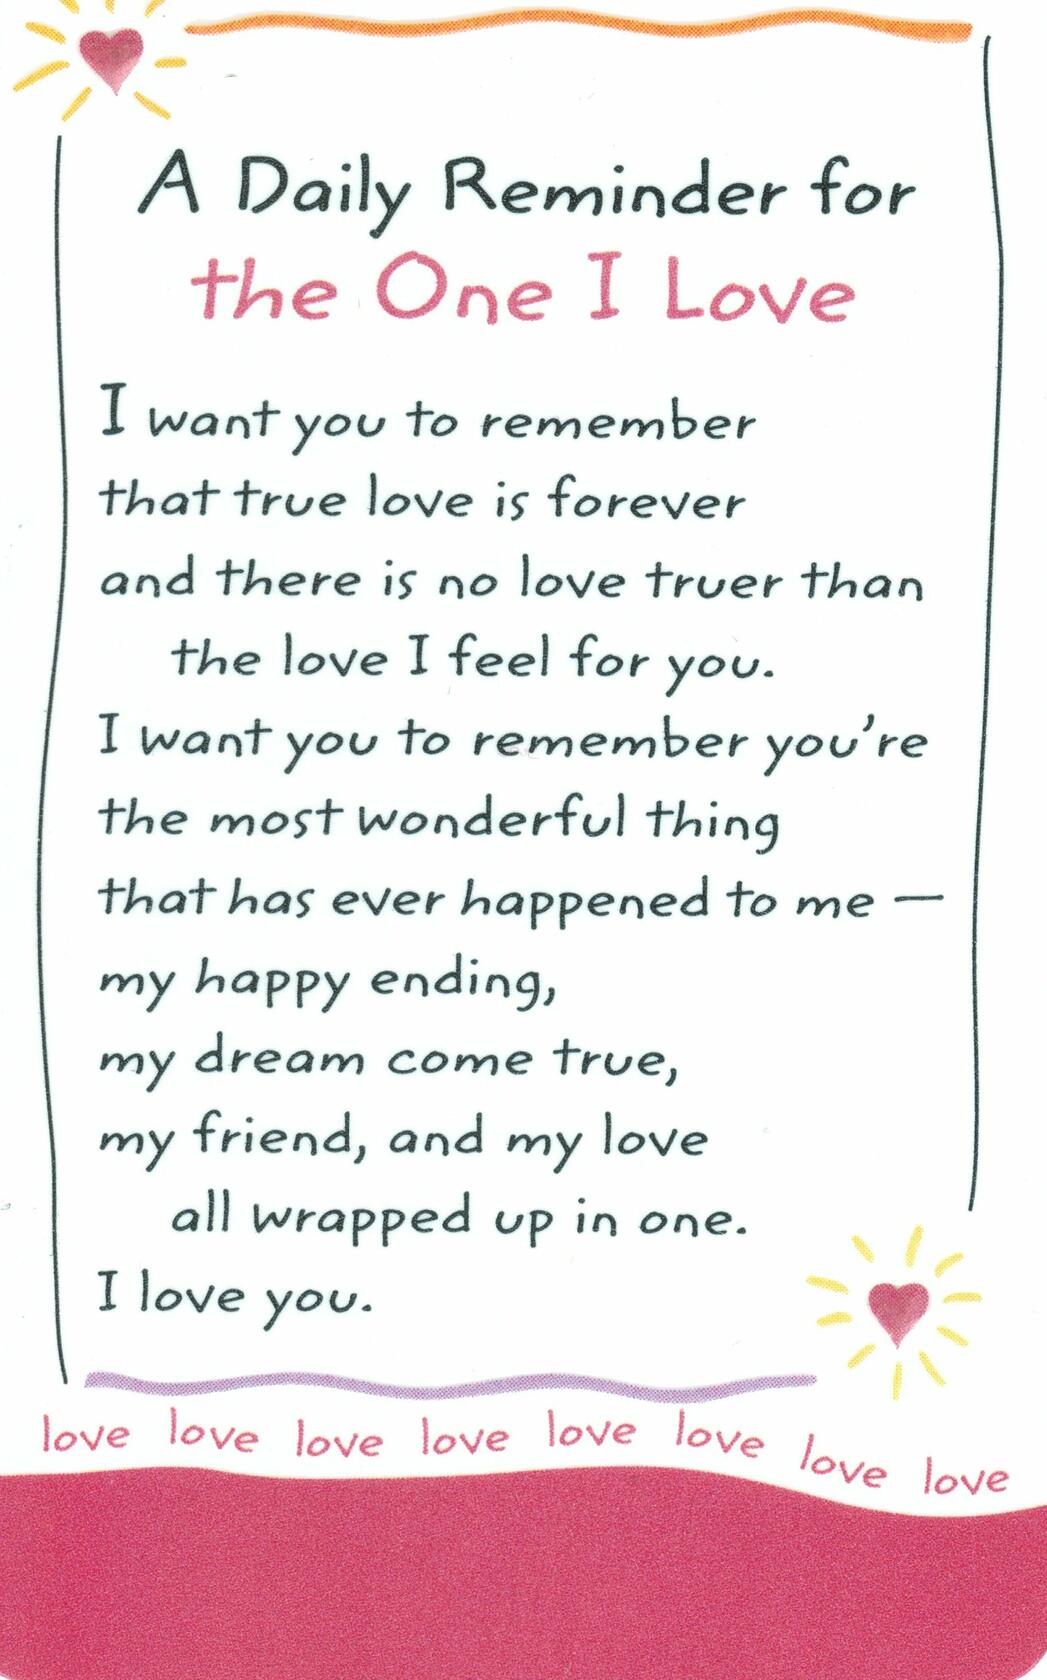 A Daily Reminder for
the One I Love
I want you to remember
that true love is forever
and there is no love truer than
the love I feel for you.
I want you to remember you're
the most wonderful thing
that has ever happened to me —
my happy ending,
my dream come true,
my friend, and my love
all wrapped up in one.
I love you.
love love love love love love love love